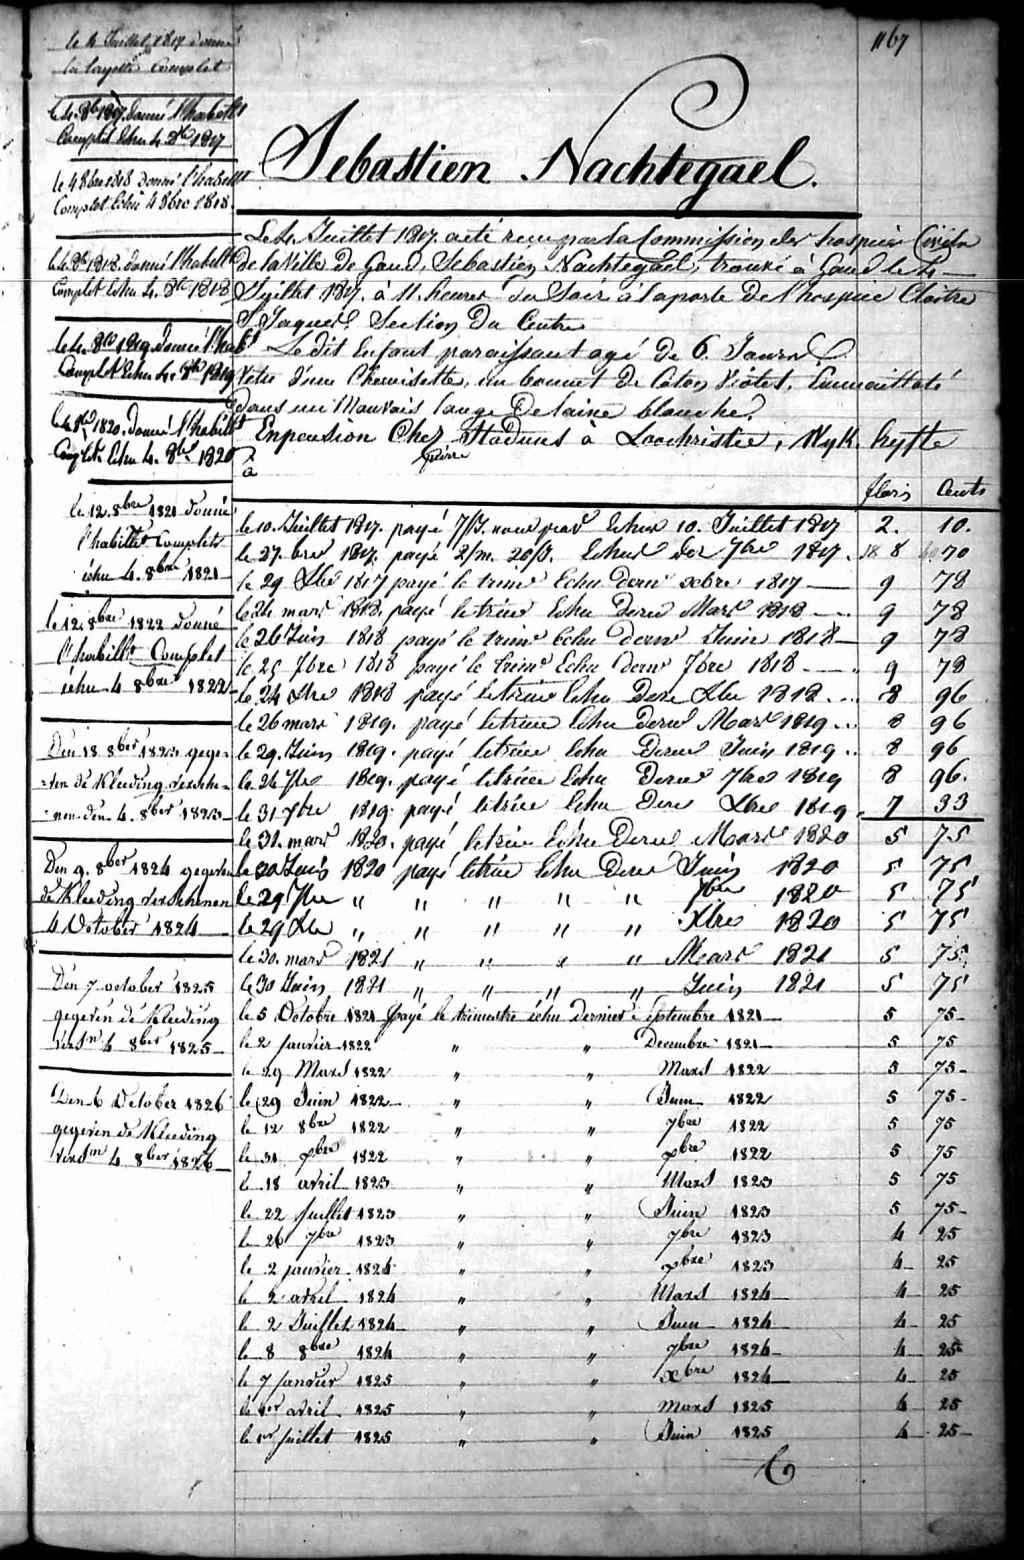 1167
le 4 Juillet 1817 donné
la layette Complet
le 4. 8b 1817. donné l'habillt
Complet Echu 4. 8bre 1817
le 4 8bre 1818 donné l'habillt
Complet Echu 4 8bre 1818.
le 4. 8b 1818. donné l'habillt
Complet Echu 4. 8bre 1818
le 4. 8bre 1819 donné l'habt
Complet Echu 4. 8bre 1819
1820. donné l'habillt
Complet Echu 4. 8bre 1820
le 12. 8bre 1821 donné
l'habillt Complet
échu 4. 8bre 1821
le 12. 8bre 1822 donné
l'habillt Complet
échu 4 8bre 1822
Den 18 8ber 1823 gege-
-ven de Kleeding verschee-
-nen den 4. 8ber 1823
Den 9. 8ber 1824 gegeven
de Kleeding verschenen
4 October 1824
Den 7 october 1825
gegeven de Kleeding
versn 4 8ber 1825
Den 6 October 1826
gegeven de Kleeding
versn 4 8ber 1826
Sebastien Nachtegael.
Le 4 Juillet 1817. a eté reçu par la Commission des hospices Civils
de la Ville de Gand, Sebastien Nachtegael, trouvé à Gand le 4
Juillet 1817. à 11. heures du Soir à la porte de l'hospice Cloitre
St Jaques. Section du Centre
Le dit Enfant paraissant agé de 6. Jours
Vetu d'une Chemisette, un bonnet de Coton Violet, Emmailloté
dans un Mauvais lange De laine blanche.
En pension Chez Stadeus à Loochristie, Wyk. hyfte
pierre
à
flors Cents
le 10. Juillet 1817. payé Echus 10. Juillet 1817 2. 10.
le 27. bre 1817. payé 2/m. 20/J. Echus der 7bre 1817. 18 8 70
le 29 Xbre 1817 payé le trime Echu dernr xbre 1817 9 78
le 24 mars 1818. payé le trime Echu Derne Mars 1818 9 78
le 26 Juin 1818 payé le trime Echu dernr Juin 1818 9 78
le 25 7bre 1818 payé le trime Echu dernr 7bre 1818 9 78
le 24 Xbre 1818 payé le trime Echu Derne Xbre 1818 8 96
le 26 mars 1819. payé le trime Echu Derne Mars 1819 8 96
le 29. Juin 1819. payé le trime Echu Derne Juin 1819 8 96
le 24 7bre 1819. payé le trime Echu Derne 7bre 1819 8 96.
le 31 7bre 1819. payé le trime Echu Derne Xbre 1819 7 33
le 31. mars 1820. payé le trime Echu Derne Mars 1820 5 75
le 20 Juin 1820 payé le trime Echu Derne Juin 1820 5 75
le 29 7bre " " " " " 7bre 1820 5 75
le 29 Xbre " " " " " Xbre 1820 5 75
le 30. mars 1821 " " " " Mars 1821 5 75
le 30 Juin 1821 " " " " Juin 1821 5 75
le 5 Octobre 1821 payé le trimestre échu dernier Septembre 1821 5 75
le 2 janvier 1822 " " Decembre 1821 5 75
le 29 Mars 1822 " " Mars 1822 5 75
le 29 Juin 1822 " " Juin 1822 5 75
le 12 8bre 1822 " " 7bre 1822 5 75
le 31 xbre 1822 " " xbre 1822 5 75
le 18 avril 1823 " " Mars 1823 5 75
le 22 juillet 1823 " " Juin 1823 5 75
le 26 7bre 1823 " " 7bre 1823 4 25
le 2 janvier 1824 " " xbre 1823 4 25
le 2 avril 1824 " " Mars 1824 4 25
le 2 Juillet 1824 " " Juin 1824 4 25
le 8 8bre 1824 " " 7bre 1824 4 25
le 7 janvier 1825 " " xbre 1824 4 25
le 1er avril 1825 " " Mars 1825 4 25
le 1er juillet 1825 " " Juin 1825 4 25